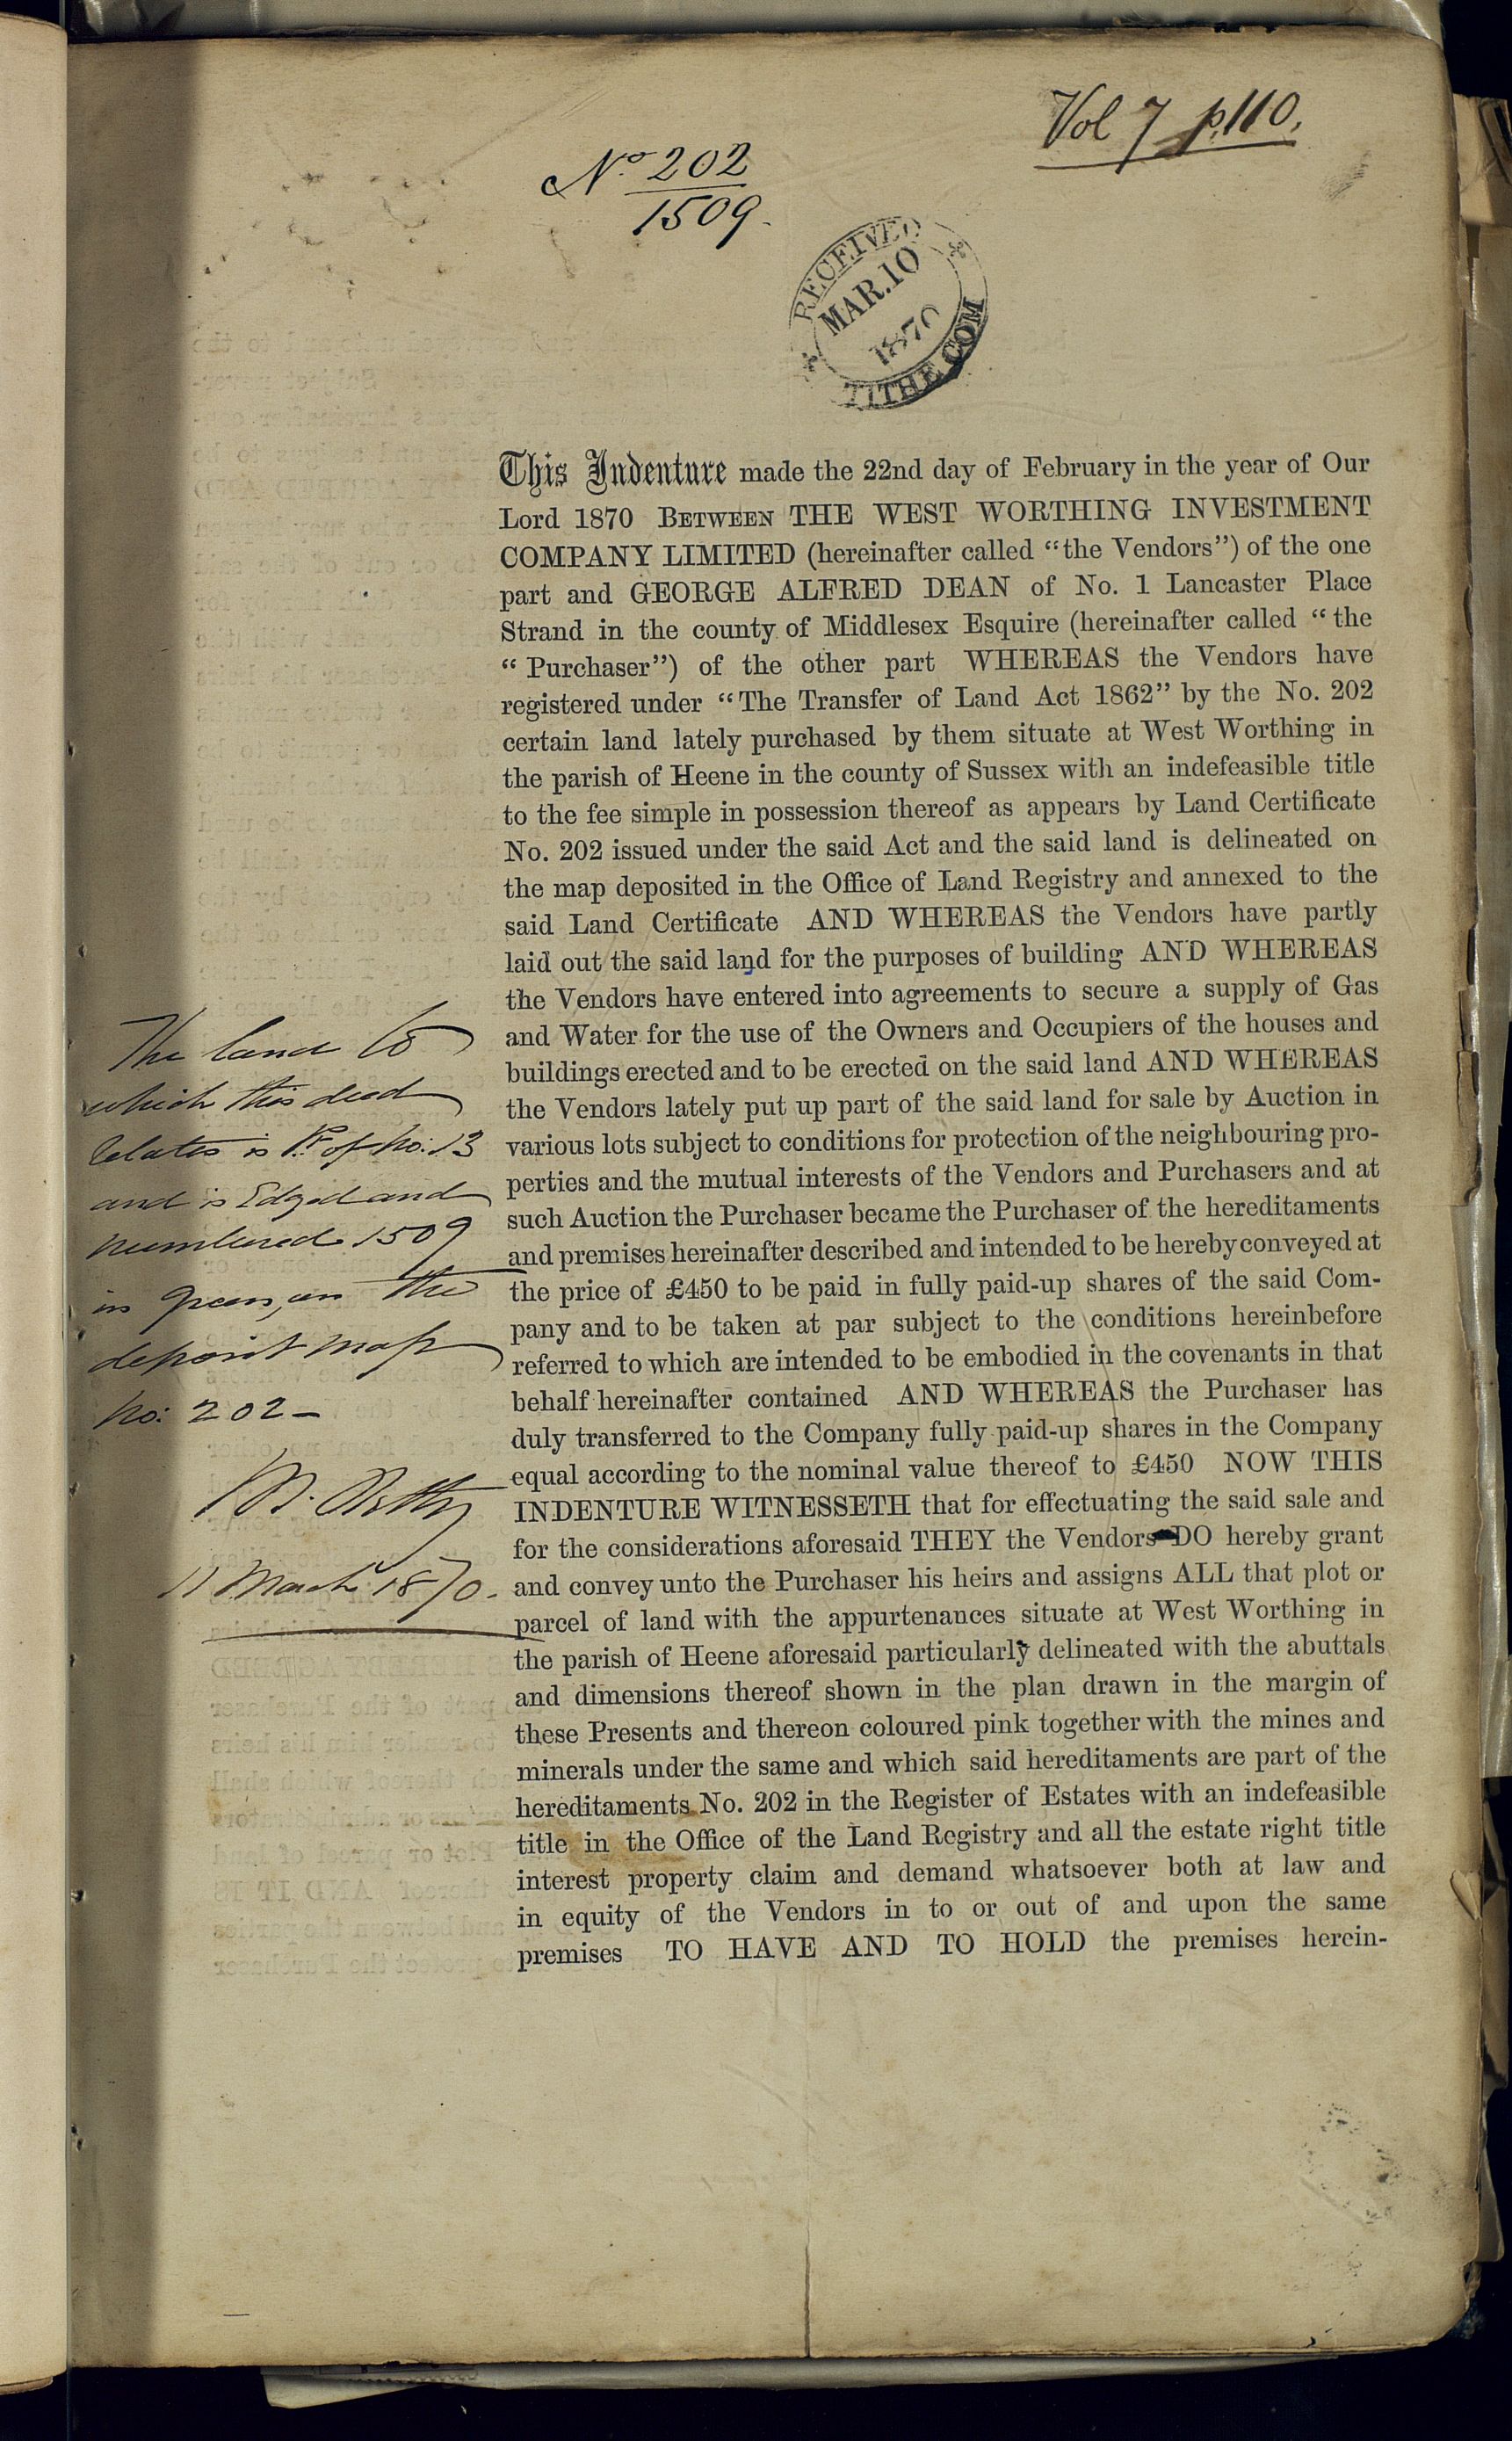 Vol 7 p. 110.
No. 202
1509.
RECEIVED
MAR. 10
1870
TITHE COM
This Indenture made the 22nd day of February in the year of Our
Lord 1870 BETWEEN THE WEST WORTHING INVESTMENT
COMPANY LIMITED (hereinafter called “the Vendors”) of the one
part and GEORGE ALFRED DEAN of No. 1 Lancaster Place
Strand in the county of Middlesex Esquire (hereinafter called “the
“Purchaser”) of the other part WHEREAS the Vendors have
registered under “The Transfer of Land Act 1862” by the No. 202
certain land lately purchased by them situate at West Worthing in
the parish of Heene in the county of Sussex with an indefeasible title
to the fee simple in possession thereof as appears by Land Certificate
No. 202 issued under the said Act and the said land is delineated on
the map deposited in the Office of Land Registry and annexed to the
said Land Certificate AND WHEREAS the Vendors have partly
laid out the said land for the purposes of building AND WHEREAS
the Vendors have entered into agreements to secure a supply of Gas
and Water for the use of the Owners and Occupiers of the houses and
buildings erected and to be erected on the said land AND WHEREAS
the Vendors lately put up part of the said land for sale by Auction in
various lots subject to conditions for protection of the neighbouring pro-
perties and the mutual interests of the Vendors and Purchasers and at
such Auction the Purchaser became the Purchaser of the hereditaments
and premises hereinafter described and intended to be hereby conveyed at
the price of £450 to be paid in fully paid-up shares of the said Com-
pany and to be taken at par subject to the conditions hereinbefore
referred to which are intended to be embodied in the covenants in that
behalf hereinafter contained AND WHEREAS the Purchaser has
duly transferred to the Company fully paid-up shares in the Company
equal according to the nominal value thereof to £450 NOW THIS
INDENTURE WITNESSETH that for effectuating the said sale and
for the considerations aforesaid THEY the Vendors DO hereby grant
and convey unto the Purchaser his heirs and assigns ALL that plot or
parcel of land with the appurtenances situate at West Worthing in
the parish of Heene aforesaid particularly delineated with the abuttals
and dimensions thereof shown in the plan drawn in the margin of
these Presents and thereon coloured pink together with the mines and
minerals under the same and which said hereditaments are part of the
hereditaments No. 202 in the Register of Estates with an indefeasible
title in the Office of the Land Registry and all the estate right title
interest property claim and demand whatsoever both at law and
in equity of the Vendors in to or out of and upon the same
premises TO HAVE AND TO HOLD the premises herein-
The land to
which this deed
relates is Pt. of No: 13
and is Edged and
numbered 1509
in green, on the
deposit map
No: 202 –
11 March 1870.